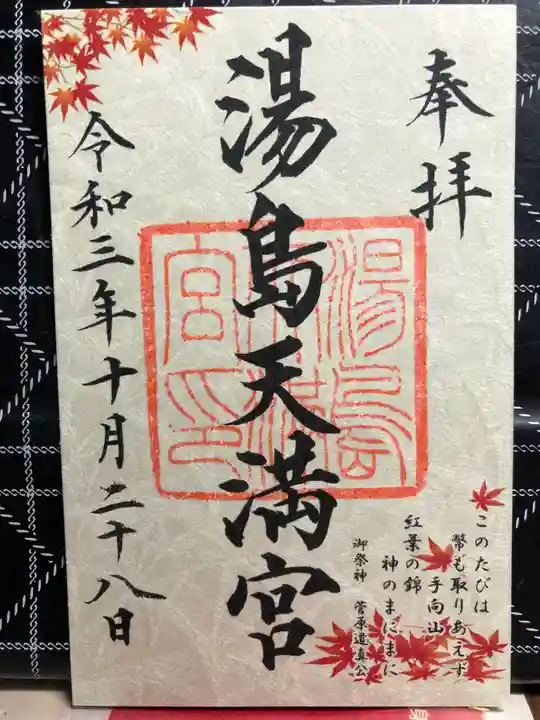 奉拝
湯島天満宮
湯島天満宮印
令和三年十月二十八日
このたびは
幣も取りあえず
手向山
紅葉の錦
神のまにまに
御祭神 菅原道真公